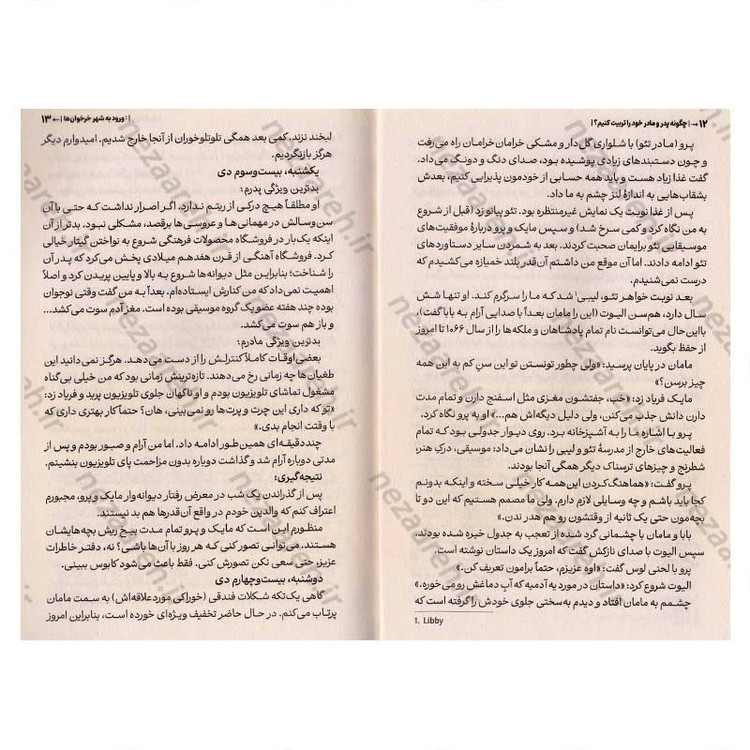 ۱۲ ← | چگونه پدر و مادر خود را تربیت کنیم؟ |
پرو (مادر تئو) با شلواری گل‌دار و مشکی خرامان خرامان راه می‌رفت
و چون دستبندهای زیادی پوشیده بود، صدای دنگ و دونگ می‌داد.
گفت غذا زیاد هست و باید همه حسابی از خودمون پذیرایی کنیم، بعدش
بشقاب‌هایی به اندازهٔ لنز چشم به ما داد.
پس از غذا نوبت یک نمایش غیرمنتظره بود. تئو پیانو زد (قبل از شروع
به من نگاه کرد و کمی سرخ شد) و سپس مایک و پرو دربارهٔ موفقیت‌های
موسیقایی تئو برایمان صحبت کردند. بعد به شمردن سایر دستاوردهای
تئو ادامه دادند. اما آن موقع من داشتم آن‌قدر بلند خمیازه می‌کشیدم که
درست نمی‌شنیدم.
بعد نوبت خواهر تئو، لیبی۱ شد که ما را سرگرم کند. او تنها شش
سال دارد، هم‌سن الیوت (این را مامان بعداً با صدایی آرام به بابا گفت)،
بااین‌حال می‌توانست نام تمام پادشاهان و ملکه‌ها را از سال ۱۰۶۶ تا امروز
از حفظ بگوید.
مامان در پایان پرسید: «ولی چطور تونستن تو این سن کم به این همه
چیز برسن؟»
مایک فریاد زد: «خب، جفتشون مغزی مثل اسفنج دارن و تمام مدت
دارن دانش جذب می‌کنن، ولی دلیل دیگه‌اش هم...» او به پرو نگاه کرد.
پرو با اشاره ما را به آشپزخانه برد. روی دیوار جدولی بود که تمام
فعالیت‌های خارج از مدرسهٔ تئو و لیبی را نشان می‌داد: موسیقی، درکِ هنر،
شطرنج و چیزهای ترسناک دیگر همگی آنجا بودند.
پرو گفت: «هماهنگ‌کردن این‌همه کار خیلی سخته و اینکه بدونم
کجا باید باشم و چه وسایلی لازم دارم. ولی ما مصمم هستیم که این دو تا
بچه‌مون حتی یک ثانیه از وقتشون رو هم هدر ندن.»
بابا و مامان با چشمانی گرد شده از تعجب به جدول خیره شده بودند.
سپس الیوت با صدای نازکش گفت که امروز یک داستان نوشته است.
پرو با لحنی لوس گفت: «اوه عزیزم، حتماً برامون تعریف کن.»
الیوت شروع کرد: «داستان در مورد یه آدمیه که آب دماغش رو می‌خوره.»
چشمم به مامان افتاد و دیدم به‌سختی جلوی خودش را گرفته است که
1. Libby
| ورود به شهر خرخوان‌ها | → ۱۳
لبخند نزند. کمی بعد همگی تلوتلوخوران از آنجا خارج شدیم. امیدوارم دیگر
هرگز بازنگردیم.
یکشنبه، بیست‌وسوم دی
بدترین ویژگی پدرم:
او مطلقاً هیچ درکی از ریتم ندارد. اگر اصرار نداشت که حتی با آن
سن‌وسالش در مهمانی‌ها و عروسی‌ها برقصد، مشکلی نبود. بدتر از آن
اینکه یک‌بار در فروشگاه محصولات فرهنگی شروع به نواختن گیتار خیالی
کرد. فروشگاه آهنگی از قرن هفدهم میلادی پخش می‌کرد که پدر آن
را شناخت؛ بنابراین مثل دیوانه‌ها شروع به بالا و پایین پریدن کرد و اصلاً
اهمیت نمی‌داد که من کنارش ایستاده‌ام. بعداً به من گفت وقتی نوجوان
بوده چند هفته عضو یک گروه موسیقی بوده است. مغز آدم سوت می‌کشد...
و باز هم سوت می‌کشد.
بدترین ویژگی مادرم:
بعضی اوقات کاملاً کنترلش را از دست می‌دهد. هرگز نمی‌دانید این
طغیان‌ها چه زمانی رخ می‌دهند. تازه‌ترینش زمانی بود که من خیلی بی‌گناه
مشغول تماشای تلویزیون بودم و او ناگهان جلوی تلویزیون پرید و فریاد زد:
«تو که داری این چرت و پرت‌ها رو نمی‌بینی، هان؟ حتماً کار بهتری داری که
با وقتت انجام بدی.»
چند دقیقه‌ای همین‌طور ادامه داد، اما من آرام و صبور بودم و پس از
مدتی دوباره آرام شد و گذاشت دوباره بدون مزاحمت پای تلویزیون بنشینم.
نتیجه‌گیری:
پس از گذراندن یک شب در معرض رفتار دیوانه‌وار مایک و پرو، مجبورم
اعتراف کنم که والدین خودم در واقع آن‌قدرها هم بد نیستند.
منظورم این است که مایک و پرو تمام مدت بیخ ریش بچه‌هایشان
هستند. می‌توانی تصور کنی که هر روز با آن‌ها باشی؟ نه، دفتر خاطرات
عزیز، حتی سعی نکن تصورش کنی. فقط باعث می‌شود کابوس ببینی.
دوشنبه، بیست‌وچهارم دی
گاهی یک تکه شکلات فندقی (خوراکی موردعلاقه‌اش) به سمت مامان
پرتاب می‌کنم. در حال حاضر تخفیف ویژه‌ای خورده است، بنابراین امروز
nezaareh.ir